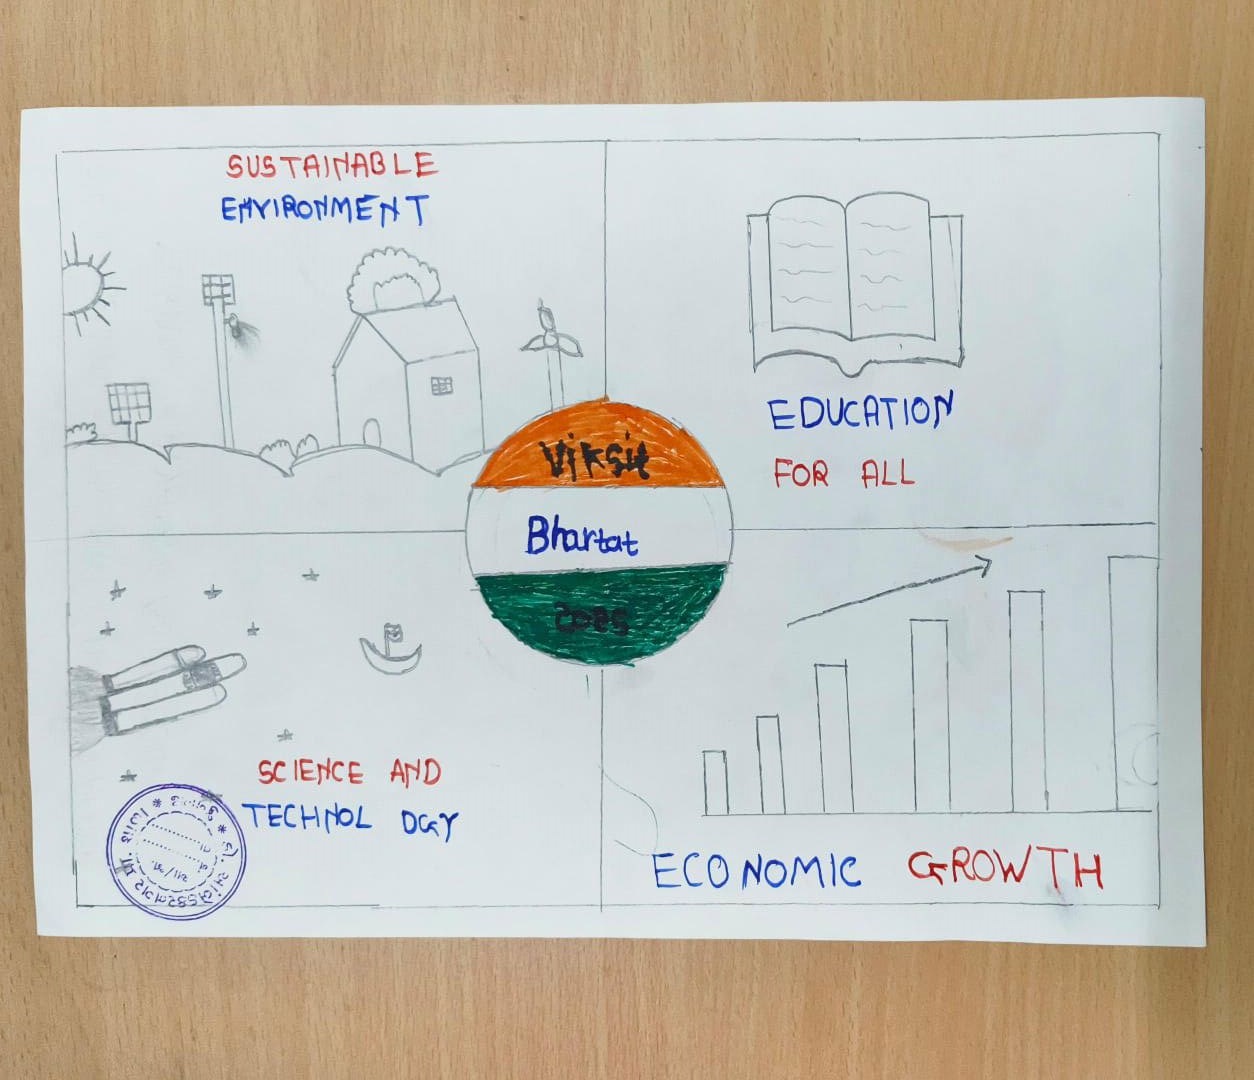 SUSTAINABLE
ENVIRONMENT
EDUCATION
FOR ALL
Viksit
Bhartat
SCIENCE AND
TECHNOL OGY
ECONOMIC GROWTH